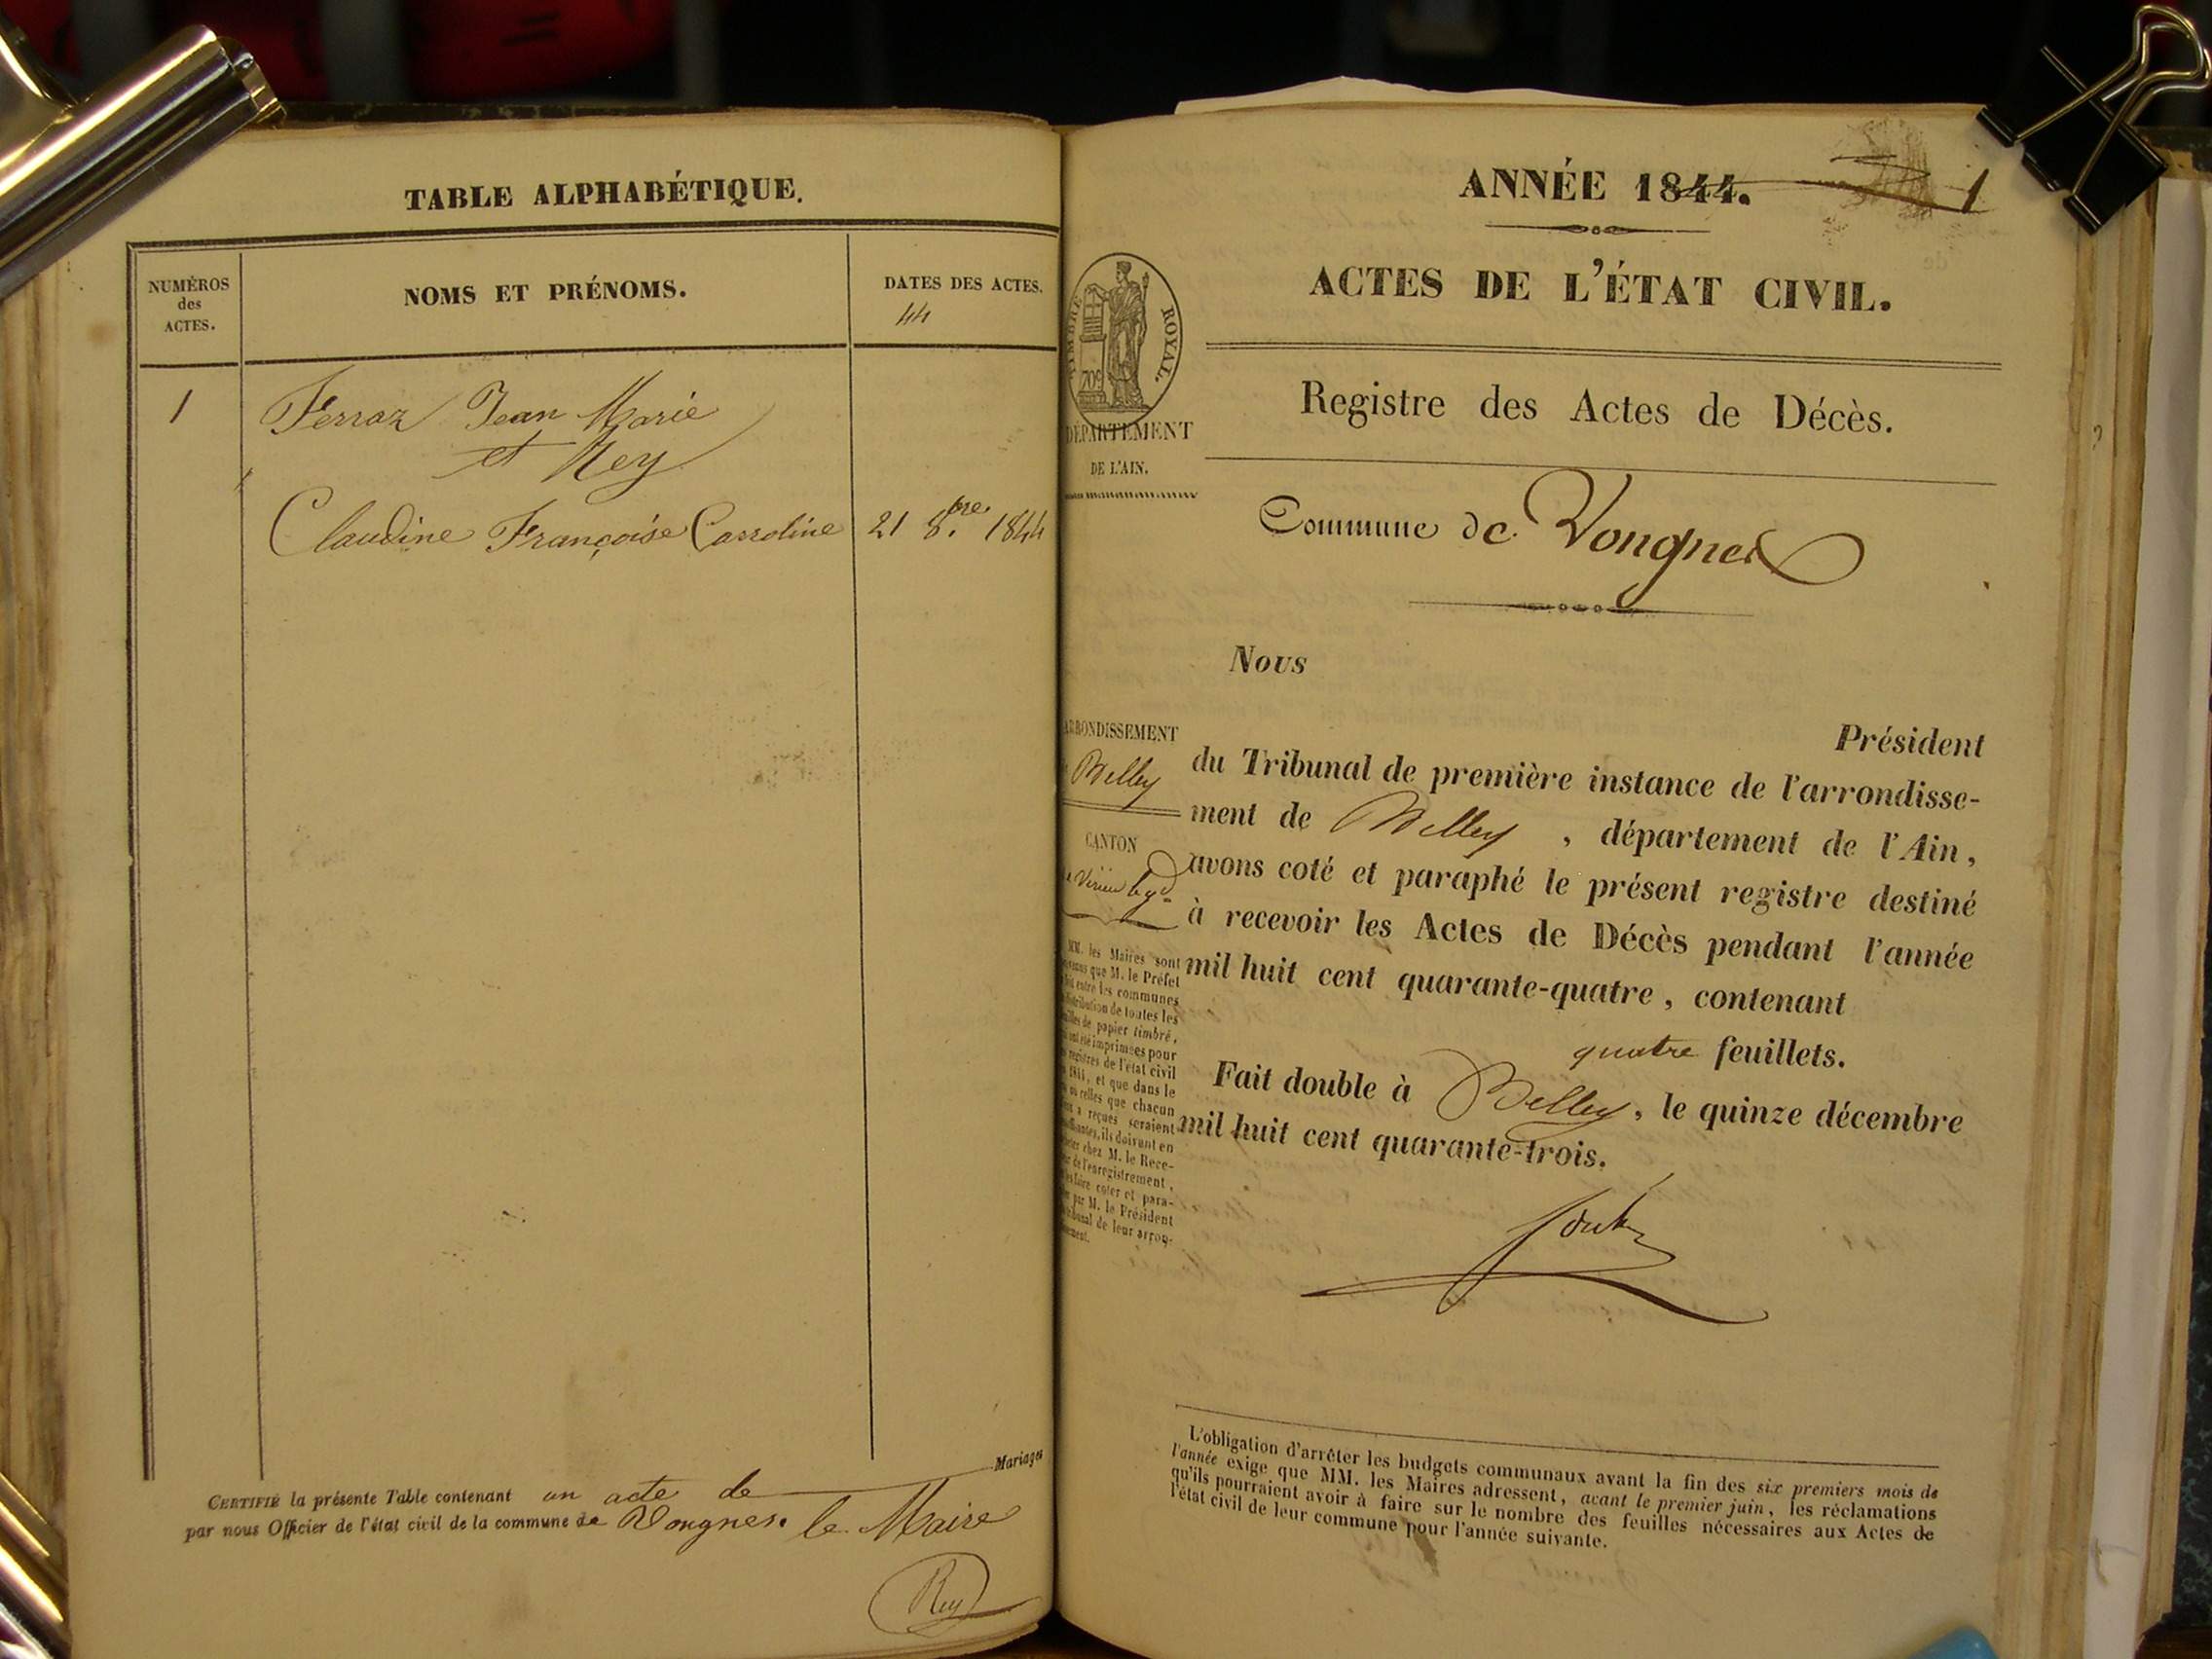 TABLE ALPHABÉTIQUE.
NUMÉROS
des
ACTES.
NOMS ET PRÉNOMS.
DATES DES ACTES.
44
1
Ferraz Jean Marie
et Rey
Claudine Françoise Carroline 21 8.bre 1844
Mariages
CERTIFIÉ la présente Table contenant un acte de
par nous Officier de l'état civil de la commune de Vongnes. le Maire
Rey
ANNÉE 1844.
1
ACTES DE L'ÉTAT CIVIL.
TIMBRE ROYAL.
709
DÉPARTEMENT
DE L'AIN.
Registre des Actes de Décès.
Commune de Vongnes
Nous
Président
ARRONDISSEMENT
Belley
du Tribunal de première instance de l'arrondisse-
ment de Belley, département de l'Ain,
CANTON
Virieu
avons coté et paraphé le présent registre destiné
à recevoir les Actes de Décès pendant l'année
mil huit cent quarante-quatre, contenant
quatre feuillets.
Fait double à Belley, le quinze décembre
mil huit cent quarante-trois.
MM. les Maires sont
que M. le Préfet
entre les communes
distribution de toutes les
de papier timbré,
ont été imprimées pour
registres de l'état civil
1844, et que dans le
où celles que chacun
a reçues seraient
ils doivent en
chez M. le Rece-
de l'enregistrement,
faire coter et para-
par M. le Président
tribunal de leur arron-
L'obligation d'arrêter les budgets communaux avant la fin des six premiers mois de
l'année exige que MM. les Maires adressent, avant le premier juin, les réclamations
qu'ils pourraient avoir à faire sur le nombre des feuilles nécessaires aux Actes de
l'état civil de leur commune pour l'année suivante.